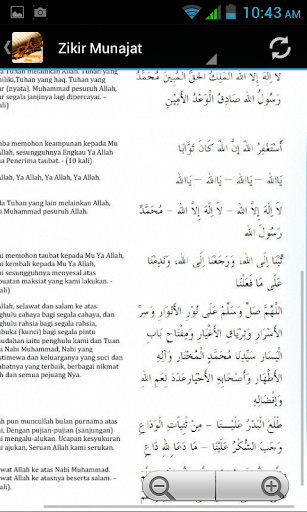 10:43 AM
Zikir Munajat
a Tuhan melainkan Allah. Tuhan yang
iliki,Tuhan yang haq. Tuhan yang
r (nyata). Muhammad pesuruh Allah,
ar segala janjinya lagi dipercayai. –
لَا إِلَهَ إِلَّا اللهُ الْمَلِكُ الْحَقُّ الْمُبِينُ مُحَمَّدٌ
رَسُولُ اللهِ صَادِقُ الْوَعْدِ الْأَمِينِ
mba memohon keampunan kepada Mu
Allah, sesungguhnya Engkau Ya Allah
a Penerima taubat. - (10 kali)
أَسْتَغْفِرُ اللهَ إِنَّ اللهَ كَانَ تَوَّابًا
Allah, Ya Allah, Ya Allah, Ya Allah.
يَا اللهُ – يَا اللهُ – يَا اللهُ – يَا اللهُ
da Tuhan yang lain melainkan Allah,
i Muhammad pesuruh Allah.
لَا إِلَهَ إِلَّا اللهُ – لَا إِلَهَ إِلَّا اللهُ – مُحَمَّدٌ
رَسُولُ اللهِ
ni memohon taubat kepada Mu Ya Allah,
i kembali kepada Mu Ya Allah,
i sesungguhnya menyesal atas
buatan maksiat yang kami lakukan. –
ali)
تُبْنَا إِلَى اللهِ، وَرَجَعْنَا إِلَى اللهِ، وَنَدِمْنَا
عَلَى مَا فَعَلْنَا
Allah, selawat dan salam ke atas
ghulu cahaya bagi segala cahaya, dan
ghulu rahsia bagi segala rahsia,
mbuka (kunci) bagi segala pintu
mudahan iaitu penghulu kami dan Tuan
i Nabi Muhammad, Nabi yang
stimewa dan keluarganya yang suci dan
abatnya yang terbaik, berbagai nikmat
ah dan semua pejuang Nya.
اللَّهُمَّ صَلِّ وَسَلِّمْ عَلَى نُورِ الْأَنْوَارِ وَسِرِّ
الْأَسْرَارِ وَتِرْيَاقِ الْأَغْيَارِ وَمِفْتَاحِ بَابِ
الْيَسَارِ سَيِّدِنَا مُحَمَّدٍ الْمُخْتَارِ وَآلِهِ
الْأَطْهَارِ وَأَصْحَابِهِ الْأَخْيَارِ عَدَدَ نِعَمِ اللهِ
وَإِفْضَالِهِ
ah pun muncullah bulan purnama atas
i, Dengan pujian-pujian (sanjungan)
i mengalu-alukan. Ucapan kesyukuran
ni ajukan, Seruan Allah kami serukan.
طَلَعَ الْبَدْرُ عَلَيْنَا – مِنْ ثَنِيَّاتِ الْوَدَاعِ
وَجَبَ الشُّكْرُ عَلَيْنَا – مَا دَعَا لِلَّهِ دَاعِ
wat Allah atas Nabi Muhammad.
wat Allah ke atasnya beserta salam. –
ali)